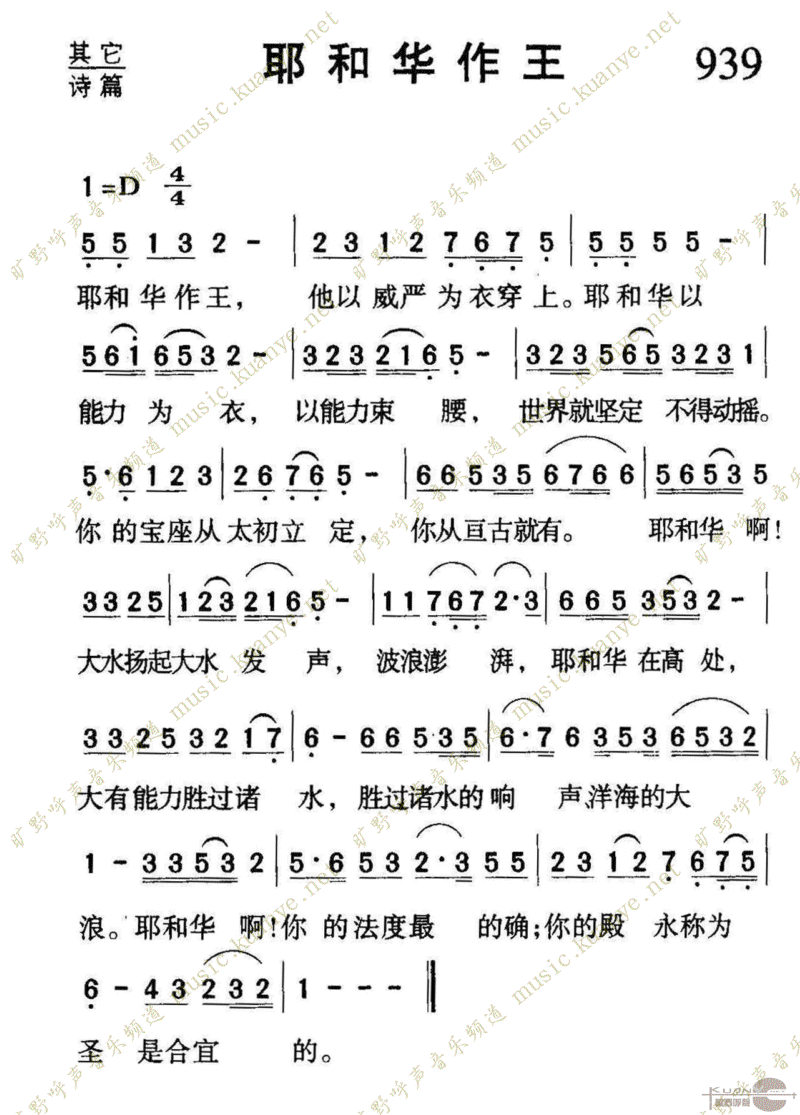 其它
诗篇
耶和华作王
939
1=D 4/4
5 5 1 3 2 - | 2 3 1 2 7 6 7 5 | 5 5 5 5 5 -
耶和华作王， 他以威严为衣穿上。耶和华以
5 6 1 6 5 3 2 - | 3 2 3 2 1 6 5 - | 3 2 3 5 6 5 3 2 3 1
能力为衣，以能力束腰，世界就坚定不得动摇。
5·6 1 2 3 | 2 6 7 6 5 - | 6 6 5 3 5 6 7 6 6 | 5 6 5 3 5
你的宝座从太初立定，你从亘古就有。耶和华啊！
3 3 2 5 | 1 2 3 2 1 6 5 - | 1 1 7 6 7 2·3 | 6 6 5 3 5 3 2 -
大水扬起大水发声，波浪澎湃，耶和华在高处，
3 3 2 5 3 2 1 7 | 6 - 6 6 5 3 5 | 6·7 6 3 5 3 6 5 3 2
大有能力胜过诸水，胜过诸水的响声、洋海的大
1 - 3 3 5 3 2 | 5·6 5 3 2·3 5 5 | 2 3 1 2 7 6 7 5
浪。耶和华啊！你的法度最的确；你的殿永称为
6 - 4 3 2 3 2 | 1 - - - ‖
圣是合宜的。
旷野呼声音乐频道 music.kuanye.net